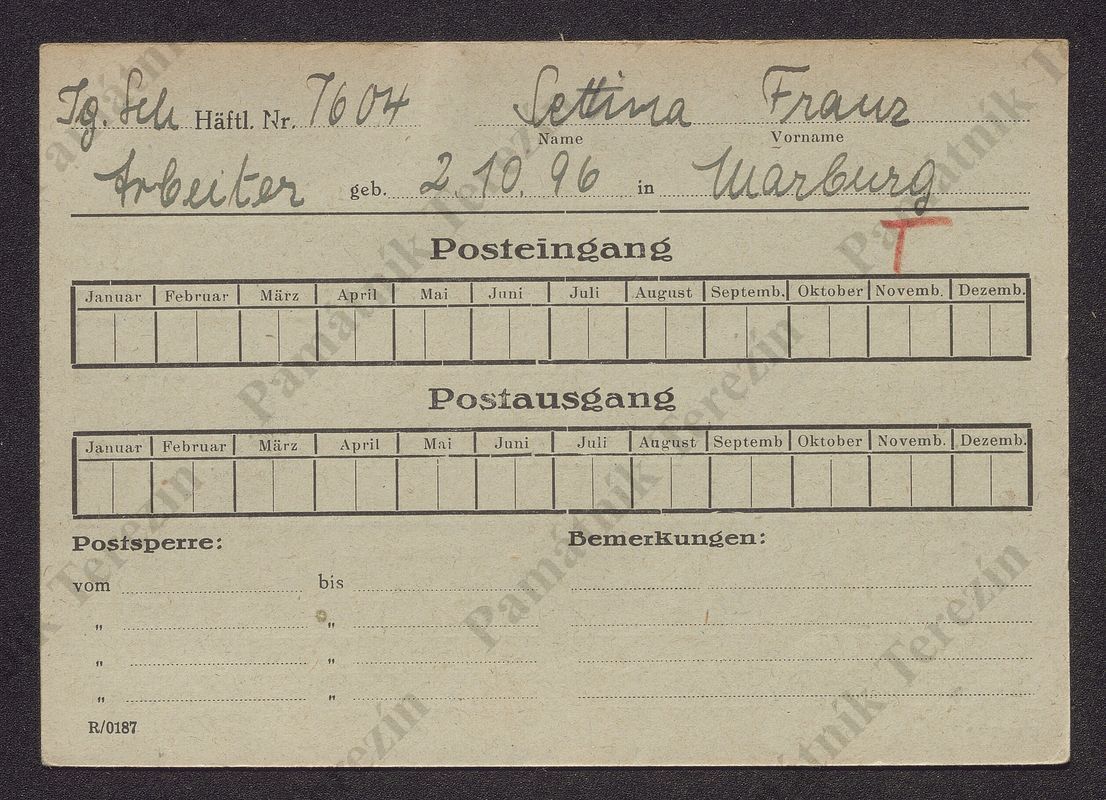 Ig. Sch Häftl. Nr. 7604 Settina Franz
Name Vorname
Arbeiter geb. 2.10.96 in Marburg
T
Posteingang
Januar Februar März April Mai Juni Juli August Septemb. Oktober Novemb. Dezemb.
Postausgang
Januar Februar März April Mai Juni Juli August Septemb Oktober Novemb. Dezemb.
Postsperre: Bemerkungen:
vom bis
" "
" "
" "
R/0187
Památník Terezín